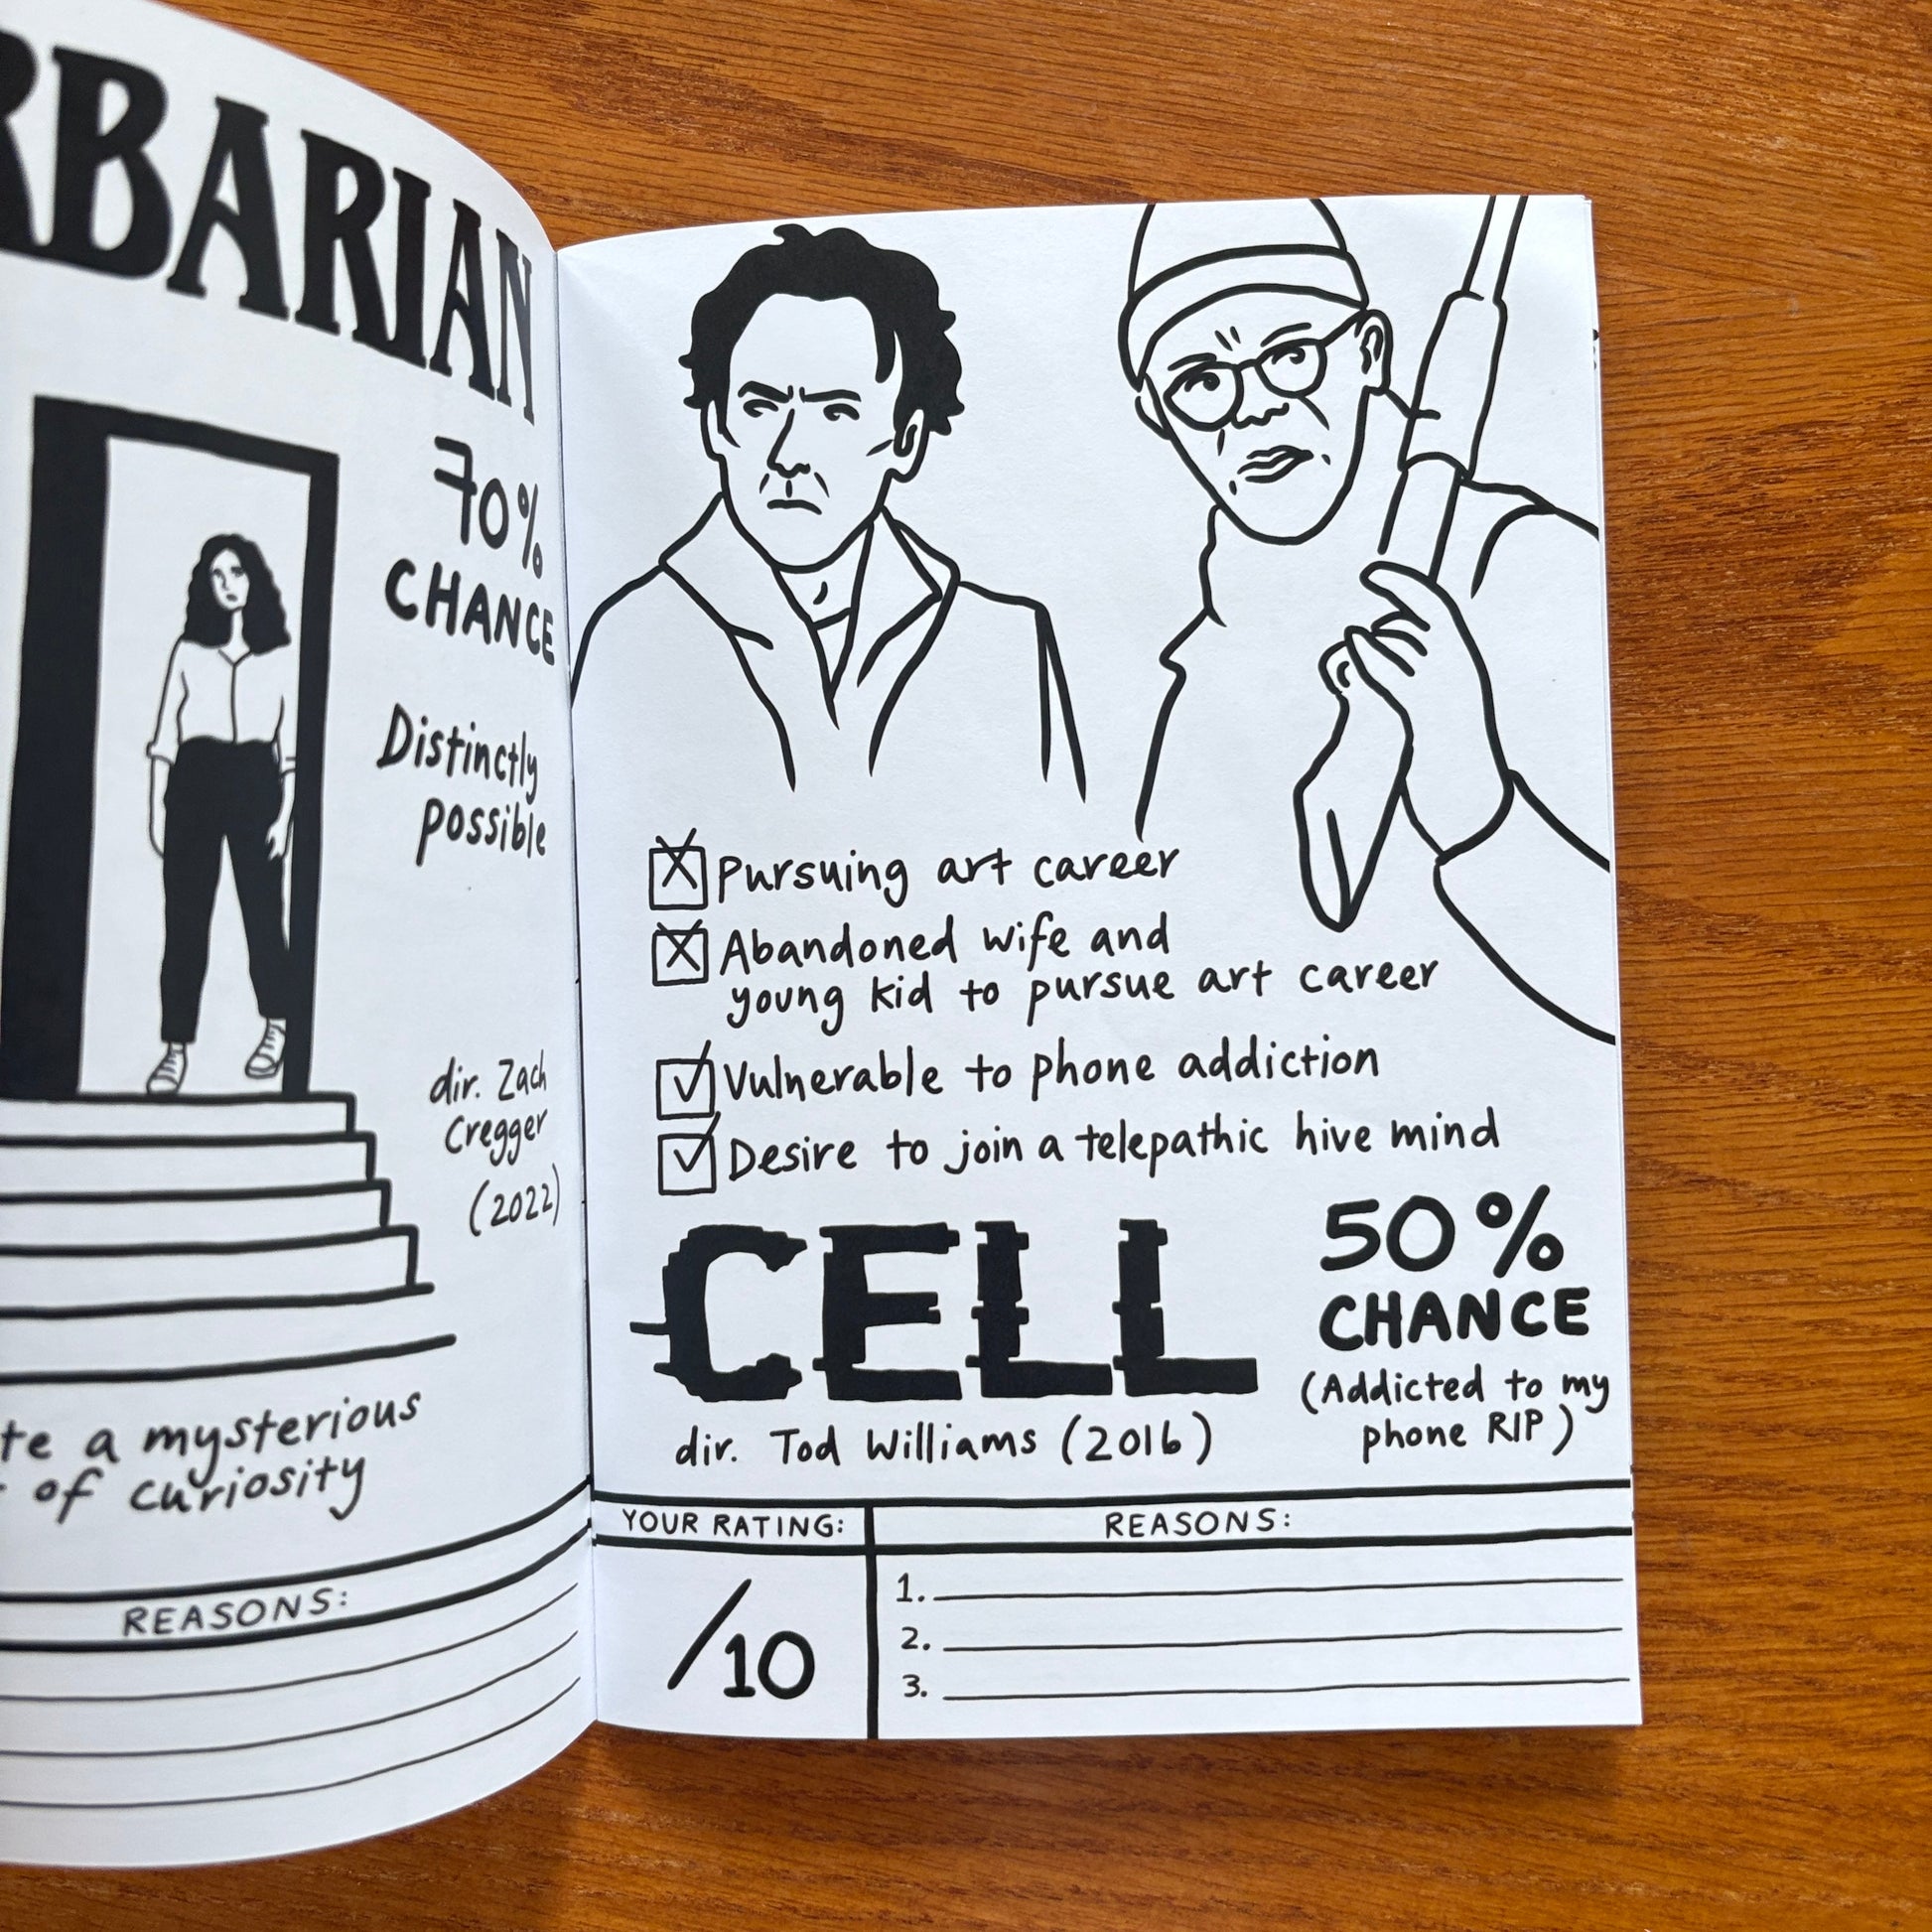 RBARIAN
70%
CHANCE
Distinctly
possible
dir. Zach
Cregger
(2022)
a mysterious
of curiosity
REASONS:
Pursuing art career
Abandoned wife and
young kid to pursue art career
Vulnerable to phone addiction
Desire to join a telepathic hive mind
CELL
50%
CHANCE
(Addicted to my
phone RIP)
dir. Tod Williams (2016)
YOUR RATING:
REASONS:
/10
1.
2.
3.